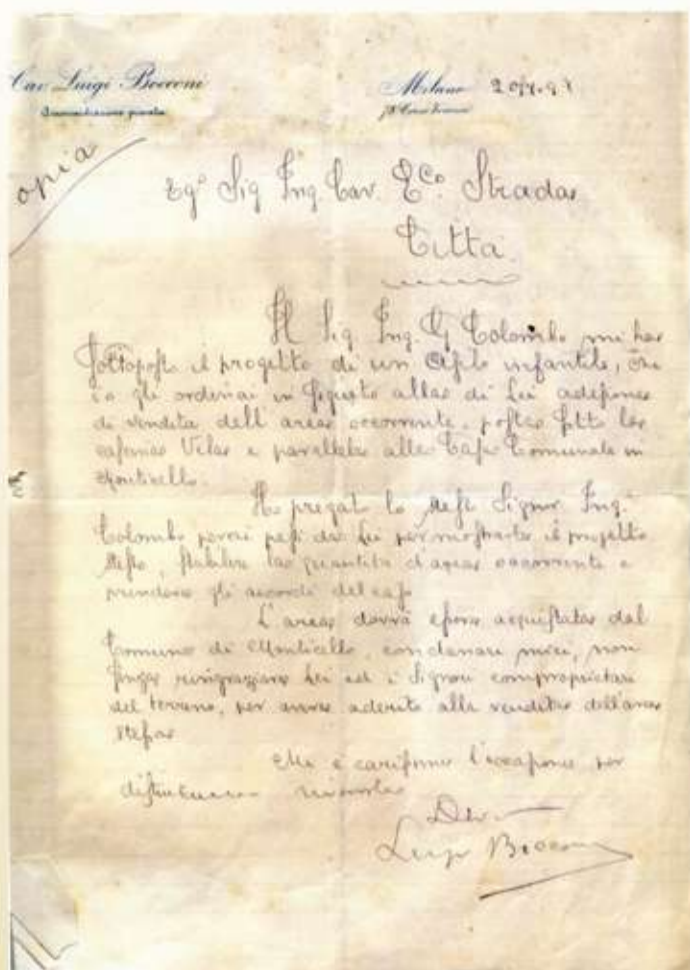 Cav Luigi Bocconi
Amministrazione privata
Milano 20/7.9
opia
Eg° Sig Ing. Cav. E.Co. Strada
Città
Il Sig Ing. G Colombo mi ha
sottoposto il progetto di un Asilo infantile, che
io gli ordinai in seguito alla di Lei adesione
di vendita dell'area occorrente, posta sotto la
cascina Vela e parallela alla Casa Comunale in
Monticello.
Ho pregat lo stess Signor Ing.
Colombo passi da Lei per mostrarle il progetto
stesso, stabilire la quantità d'area occorrente e
prendere gli accordi del caso
L'area dovrà essere acquistata dal
Comune di Monticello, con denari miei, non
senza ringraziare Lei ed i Signori comproprietari
del terreno, per avere aderito alla vendita dell'area
stessa
Mi è carissima l'occasione per
distintamente riverirla
Dev
Luigi Bocconi